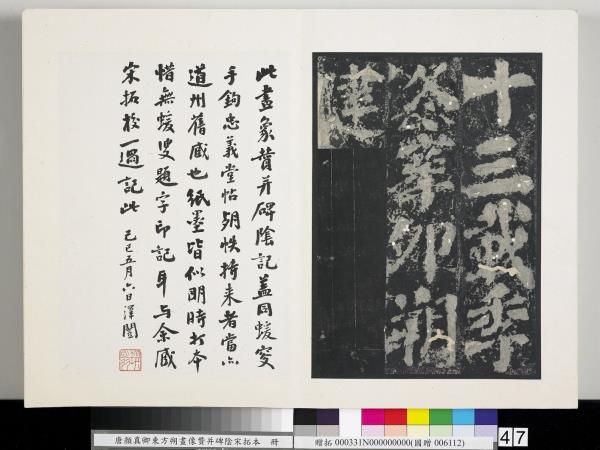 十三載季
冬辛卯朔
建
此畫象贊并碑陰記蓋同蝯叟
手鉤忠義堂帖帙持来者當亦
道州舊臧也紙墨皆似明時打本
惜無蝯叟題字印記耳与余臧
宋拓校一過記此 己巳五月六日澤闓
唐顏真卿東方朔畫像贊并碑陰宋拓本 冊
贈拓 000331N000000000(國贈 006112)
47